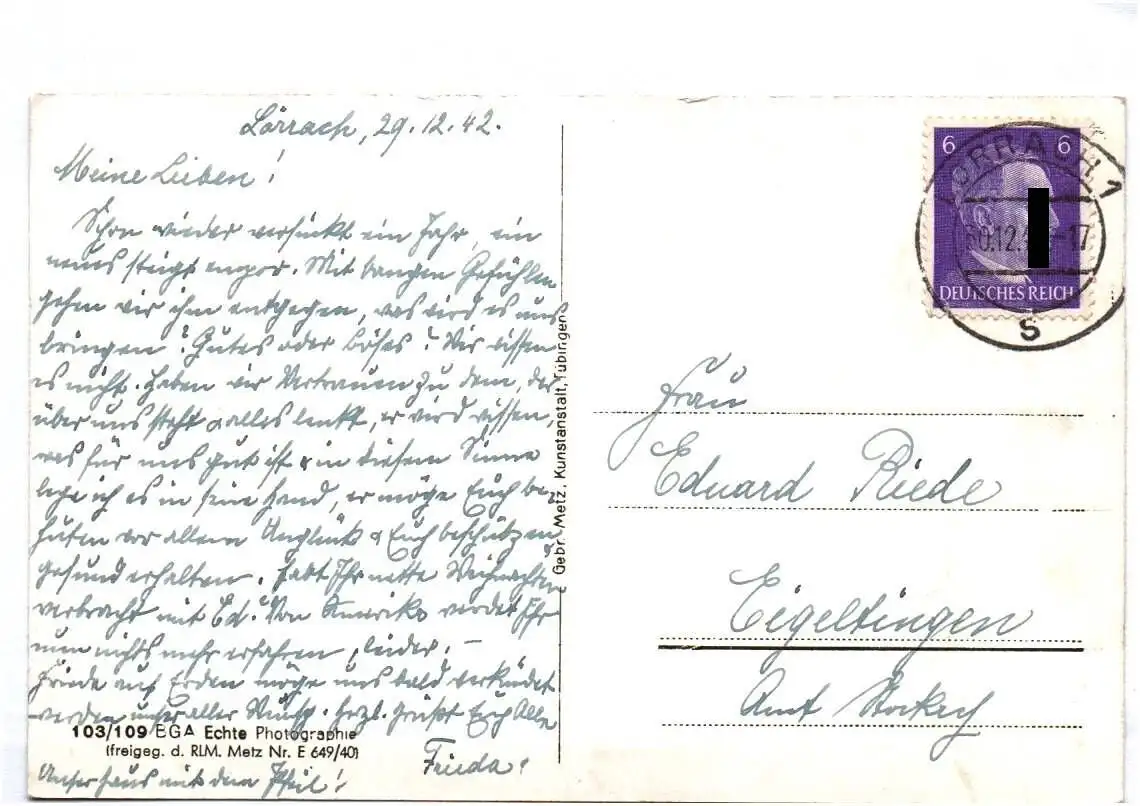 Lörrach, 29.12.42.
Meine Lieben!
Schon wieder versinkt ein Jahr, ein
neues steigt empor. Mit bangen Gefühlen
gehen wir ihm entgegen, was wird es uns
bringen? Gutes oder Böses? Wir wissen
es nicht. Haben wir Vertrauen zu dem, der
über uns steht & alles lenkt, er wird wissen,
was für uns gut ist & in diesem Sinne
lege ich es in seine Hand, er möge Euch be-
hüten vor allem Unglück & Euch beschützen,
gesund erhalten. Habt Ihr nette Weihnachten
verbracht mit Ed.? Von Amerika werdet Ihr
nun nichts mehr erfahren, leider. –
Friede auf Erden möge uns bald verkündet
werden unser aller Wunsch. Herzl. grüßt Euch Alle
Frieda.
Unser Haus mit dem Pfeil!
103/109 BGA Echte Photographie
(freigeg. d. RLM. Metz Nr. E 649/40)
Gebr. Metz, Kunstanstalt, Tübingen
6 6
DEUTSCHES REICH
LÖRRACH 1
30.12. -17
S
Frau
Eduard Riede
Eigeltingen
Amt Stockach